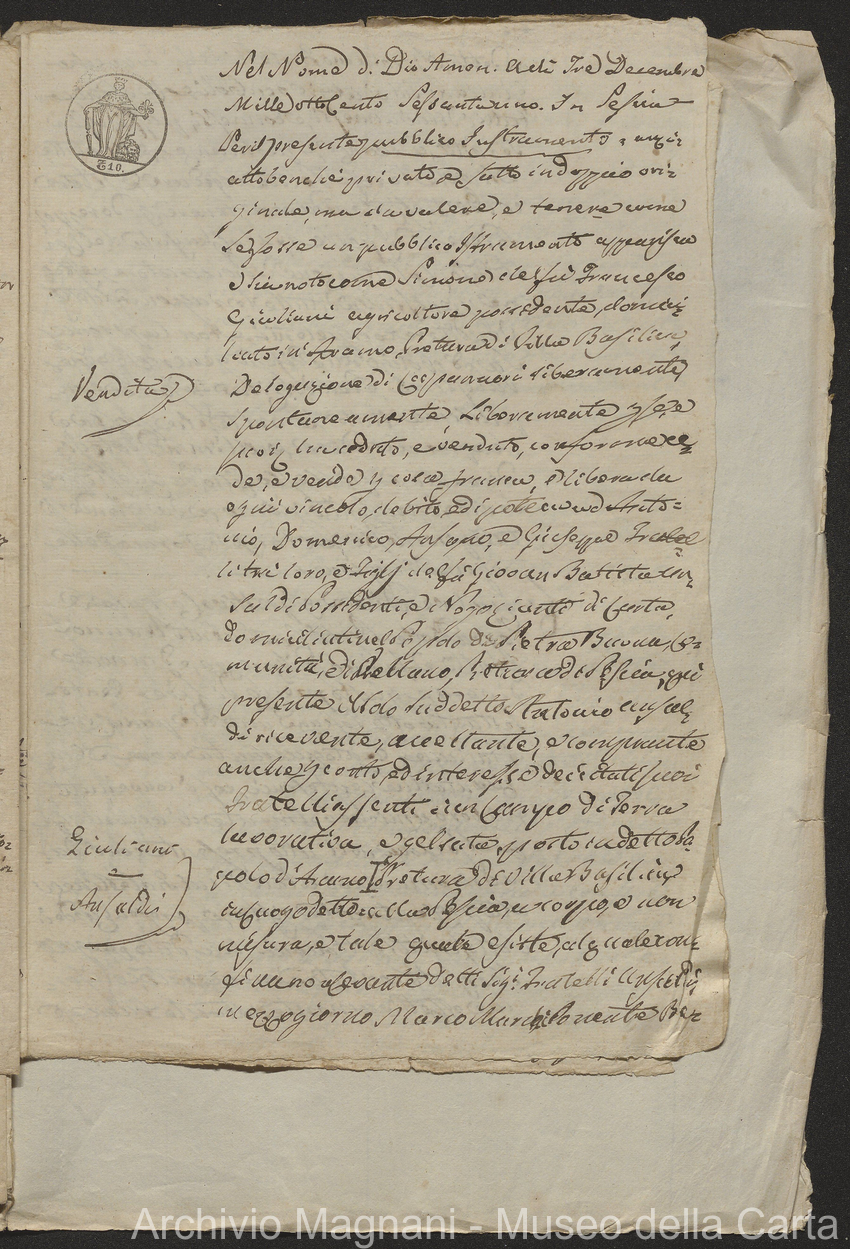 Nel Nome di Dio Amen. Adì Tre Decembre
Mille ottoCento Sessantuno. In Pescia
Per il presente pubblico Instrumento, anzi
atto benchè privato e fatto in doppio ori-
ginale, ma da valere, e tenere come
Se fosse un pubblico Istrumento apparisca
e sia noto come Simone del fù Francesco
Giuliani agricoltore possidente, domici-
liato in Aramo, Pretura di Villa Basilica,
Delegazione di liberamente
Vendita
spontaneamente, Liberamente
ha ceduto, e venduto, conforme ce-
de, e vende p cosa franca, e libera da
ogni vincolo, debito, ed ipoteca ad Anto=
nio, Domenico, Ansano, e Giuseppe Fratel
li tra loro, e Figlj del fù Giovan Batista An-
saldi Possidenti, e Negozianti di Carta,
domiciliati nel Popolo di Pietra Buona, Co-
munità, di Vellano, Pretura di Pescia, qui
presente il do Suddetto Antonio Ansal-
di ricevente, accettante, e comprante
anche p conto, ed interesse de' citati suoi
Fratelli assenti un Campo di Terra
lavorativa, e gelsata, posto in detto Po-
Giuliani
=
Ansaldi
polo di Aramo Pretura di Villa Basilica
in Luogo detto alla Pescia, a corpo, e non
misura, e tale quale esiste, al quale con-
finano a Levante detti Sigi. Fratelli Ansaldi,
mezzogiorno Marco Marchi, Ponente Ber
£10.
Archivio Magnani - Museo della Carta